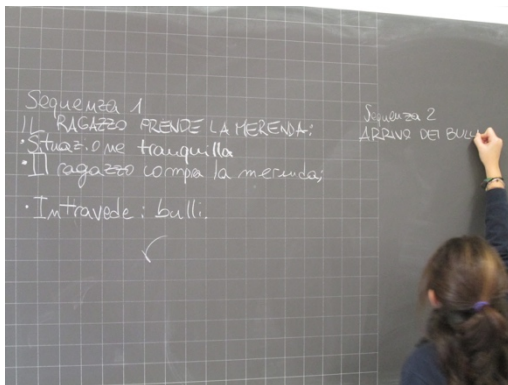 Sequenza 1
IL RAGAZZO PRENDE LA MERENDA:
• Situazione tranquilla
• Il ragazzo compra la merenda;
• Intravede i bulli.
Sequenza 2
ARRIVO DEI BULLI